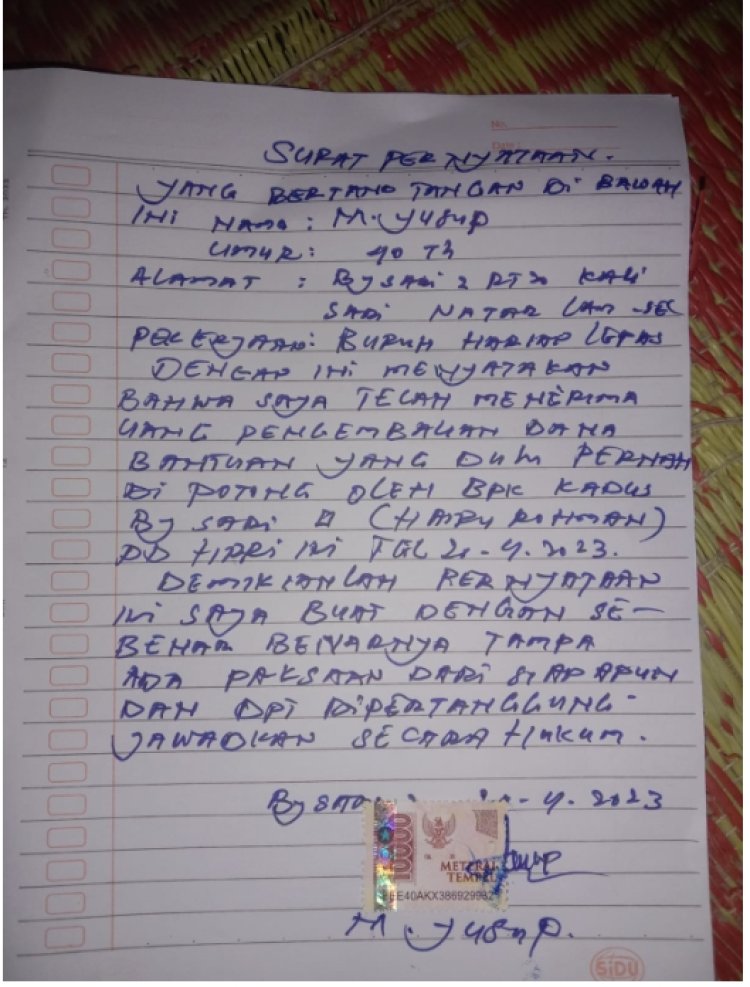 No.
Date
SURAT PERNYATAAN.
YANG BERTAND TANGAN DI BAWAH
INI NAMA : M. YUSUP
UMUR : 40 TH
ALAMAT : BY SARI 2 RT 20 KALI
SARI NATAR LAM-SEL
PEKERJAAN: BURUH HARIAN LEPAS
DENGAN INI MENYATAKAN
BAHWA SAYA TELAH MENERIMA
UANG PENGEMBALIAN DANA
BANTUAN YANG DULU PERNAH
DI POTONG OLEH BPK KADUS
BY SARI II (HAIRU ROHMAN)
PD HARI INI TGL 21-4.2023.
DEMIKIANLAH PERNYATAAN
INI SAYA BUAT DENGAN SE-
BENAR BENARNYA TAMPA
ADA PAKSAAN DARI SIAPAPUN
DAN DPT DIPERTANGGUNG-
JAWABKAN SECARA HUKUM.
BY SARI -4.2023
10000
METERAI
TEMPEL
EE40AKX386929982
M. YUSUP.
SiDU